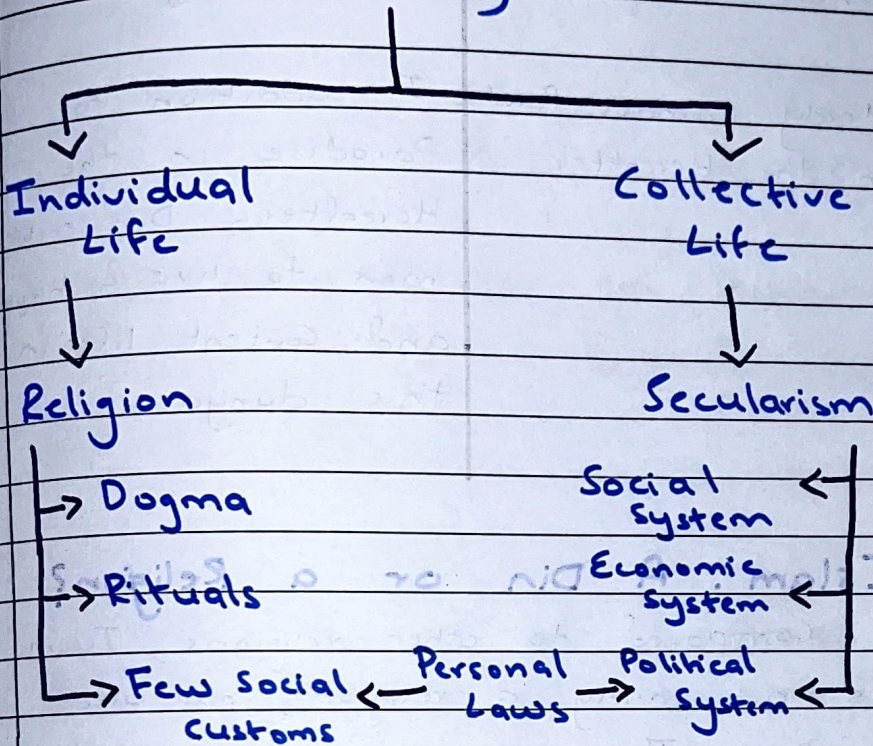 Individual
Life
Collective
Life
Religion
Secularism
Dogma
Rituals
Few Social
customs
Personal
Laws
Social
System
Economic
System
Political
System